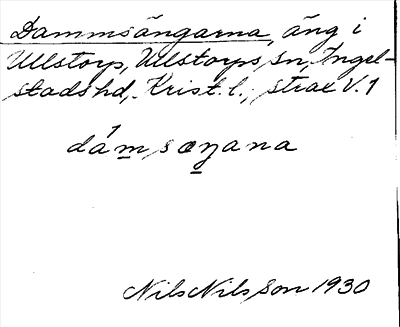 Dammsängarna, äng i
Ullstorp, Ullstorps sn, Ingel-
stads hd, Krist. l., strax V. 1
dámsæŋana
Nils Nilsson 1930